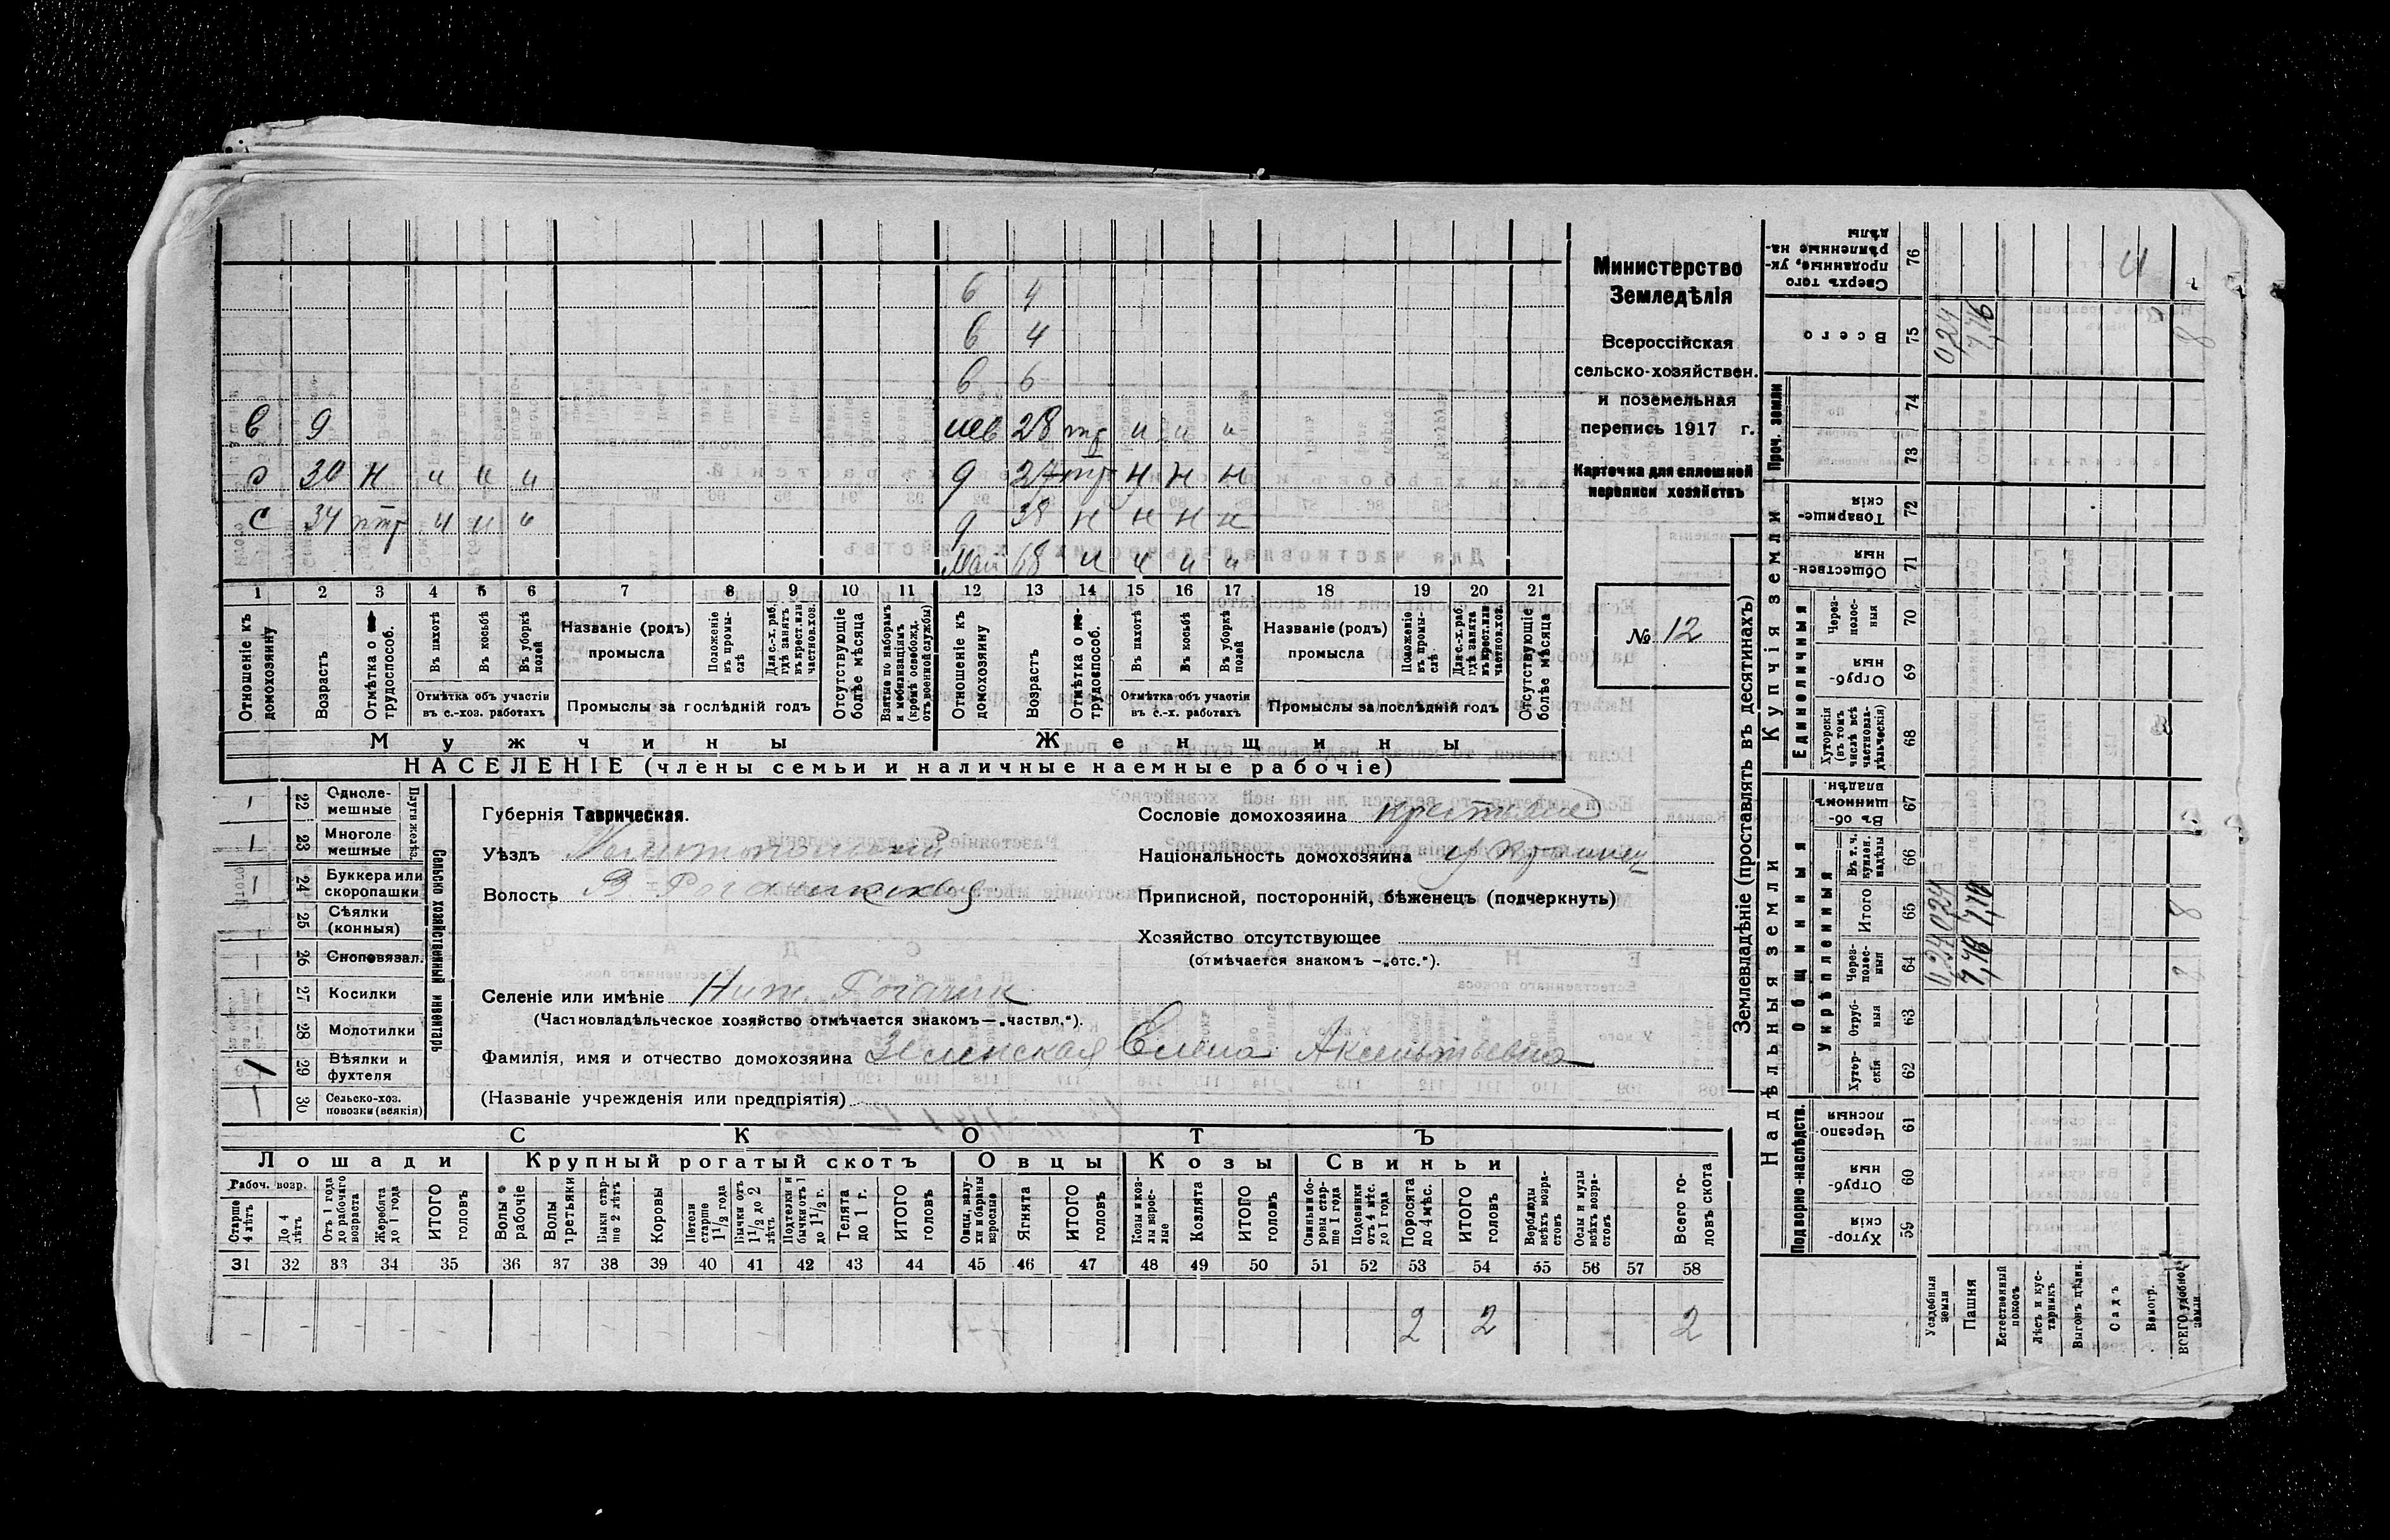 6 4
в 4
в 6
в 9 нев 28 тр и и и
с 30 н и и и д 27 тр н н н
с 34 птр и и и д 38 н н н н
Май 68 и и и и
1 2 3 4 5 6 7 8 9 10 11 12 13 14 15 16 17 18 19 20 21
Отношеніе къ домохозяину
Возрастъ
Отмѣтка о трудоспособ.
Въ пахотѣ
Въ косьбѣ
Въ уборкѣ полей
Отмѣтка объ участіи въ с.-хоз. работахъ
Названіе (родъ) промысла
Положеніе въ промы-слѣ
Для с.-х. раб. гдѣ занятъ въ крест. или частнов. хоз.
Промыслы за послѣдній годъ
Отсутствующіе болѣе мѣсяца
Взятые по наборамъ и мобилизаціямъ (кромѣ освобожд. отъ военной службы)
Отношеніе къ домохозяину
Возрастъ
Отмѣтка о трудоспособ.
Въ пахотѣ
Въ косьбѣ
Въ уборкѣ полей
Отмѣтка объ участіи въ с.-х. работахъ
Названіе (родъ) промысла
Положеніе въ промы-слѣ
Для с.-х. раб. гдѣ занята въ крест. или частнов. хоз.
Промыслы за послѣдній годъ
Отсутствующіе болѣе мѣсяца
Мужчины Женщины
НАСЕЛЕНІЕ (члены семьи и наличные наемные рабочіе)
Министерство
Земледѣлія
Всероссійская
сельско-хозяйствен.
и поземельная
перепись 1917 г.
Карточка для сплошной
переписи хозяйствъ
№ 12
22 Одноле-мешные
23 Многоле мешные
Плуги желѣз.
24 Буккера или скоропашки
25 Сѣялки (конныя)
26 Сноповязал.
27 Косилки
28 Молотилки
29 Вѣялки и фухтеля
30 Сельско-хоз. повозки (всякія)
Сельско хозяйственный инвентарь
Губернія Таврическая.
Уѣздъ Мелитопольский
Волость В Рогачикская
Сословіе домохозяина крестьяне
Національность домохозяина украинец
Приписной, посторонній, бѣженецъ (подчеркнуть)
Хозяйство отсутствующее
(отмѣчается знакомъ —„отс.“).
Селеніе или имѣніе Ниж. Рогачик
(Частновладѣльческое хозяйство отмѣчается знакомъ—„частвл.“).
Фамилія, имя и отчество домохозяина Зеленская Елена Аксентьевна
(Названіе учрежденія или предпріятія)
СКОТЪ
Лошади Крупный рогатый скотъ Овцы Козы Свиньи
Рабоч. возр.
Старше 4 лѣтъ
До 4 лѣтъ
Отъ 1 года до рабочаго возраста
Жеребята до 1 года
ИТОГО головъ
Волы рабочіе
Волы третьяки
Быки стар-ше 2 лѣтъ
Коровы
Нетели старше 1 1/2 года
Бычки отъ 1 1/2 до 2 лѣтъ
Подтелки и бычки отъ 1 до 1 1/2 г.
Телята до 1 г.
ИТОГО головъ
Овцы, валу-хи и бараны взрослые
Ягнята
ИТОГО головъ
Козы и коз-лы взрос-лые
Козлята
ИТОГО головъ
Свиньи и бо-ровы стар-ше 1 года
Подсвинки отъ 4 мѣс. до 1 года
Поросята до 4 мѣс.
ИТОГО головъ
Верблюды всѣхъ возра-стовъ
Ослы и мулы всѣхъ возра-стовъ
Всего го-ловъ скота
31 32 33 34 35 36 37 38 39 40 41 42 43 44 45 46 47 48 49 50 51 52 53 54 55 56 57 58
2 2 2
Землевладѣніе (проставлять въ десятинахъ)
Купчія земли
Надѣльныя земли
Сверхъ того проданные, ук-рѣпленные на-дѣлы 76
Всего 75 0,24 7,76
Проч. земли 74 73
Товарище-скія 72
Обществен-ныя 71
Единоличныя
Через-полос-ныя 70
Отруб-ныя 69
Хуторскія (въ томъ числѣ всѣ частновла-дѣльческія) 68
Общинныя
Въ об-щинномъ владѣн. 67
Укрѣпленныя
Въ т. ч. куплен. надѣлы 66
Итого 65 0,24 7,76 8
Через-полос-ныя 64 0,24 7,76
Отруб-ныя 63
Хутор-скія 62
Подворно-наслѣдств.
Черезпо-лосныя 61
Отруб-ныя 60
Хутор-скія 59
Усадебныя земли
Пашня
Естественный покосъ
Лѣсъ и кус-тарникъ
Выгонъ цѣлин.
Садъ
Виногр.
ВСЕГО удобной земли.